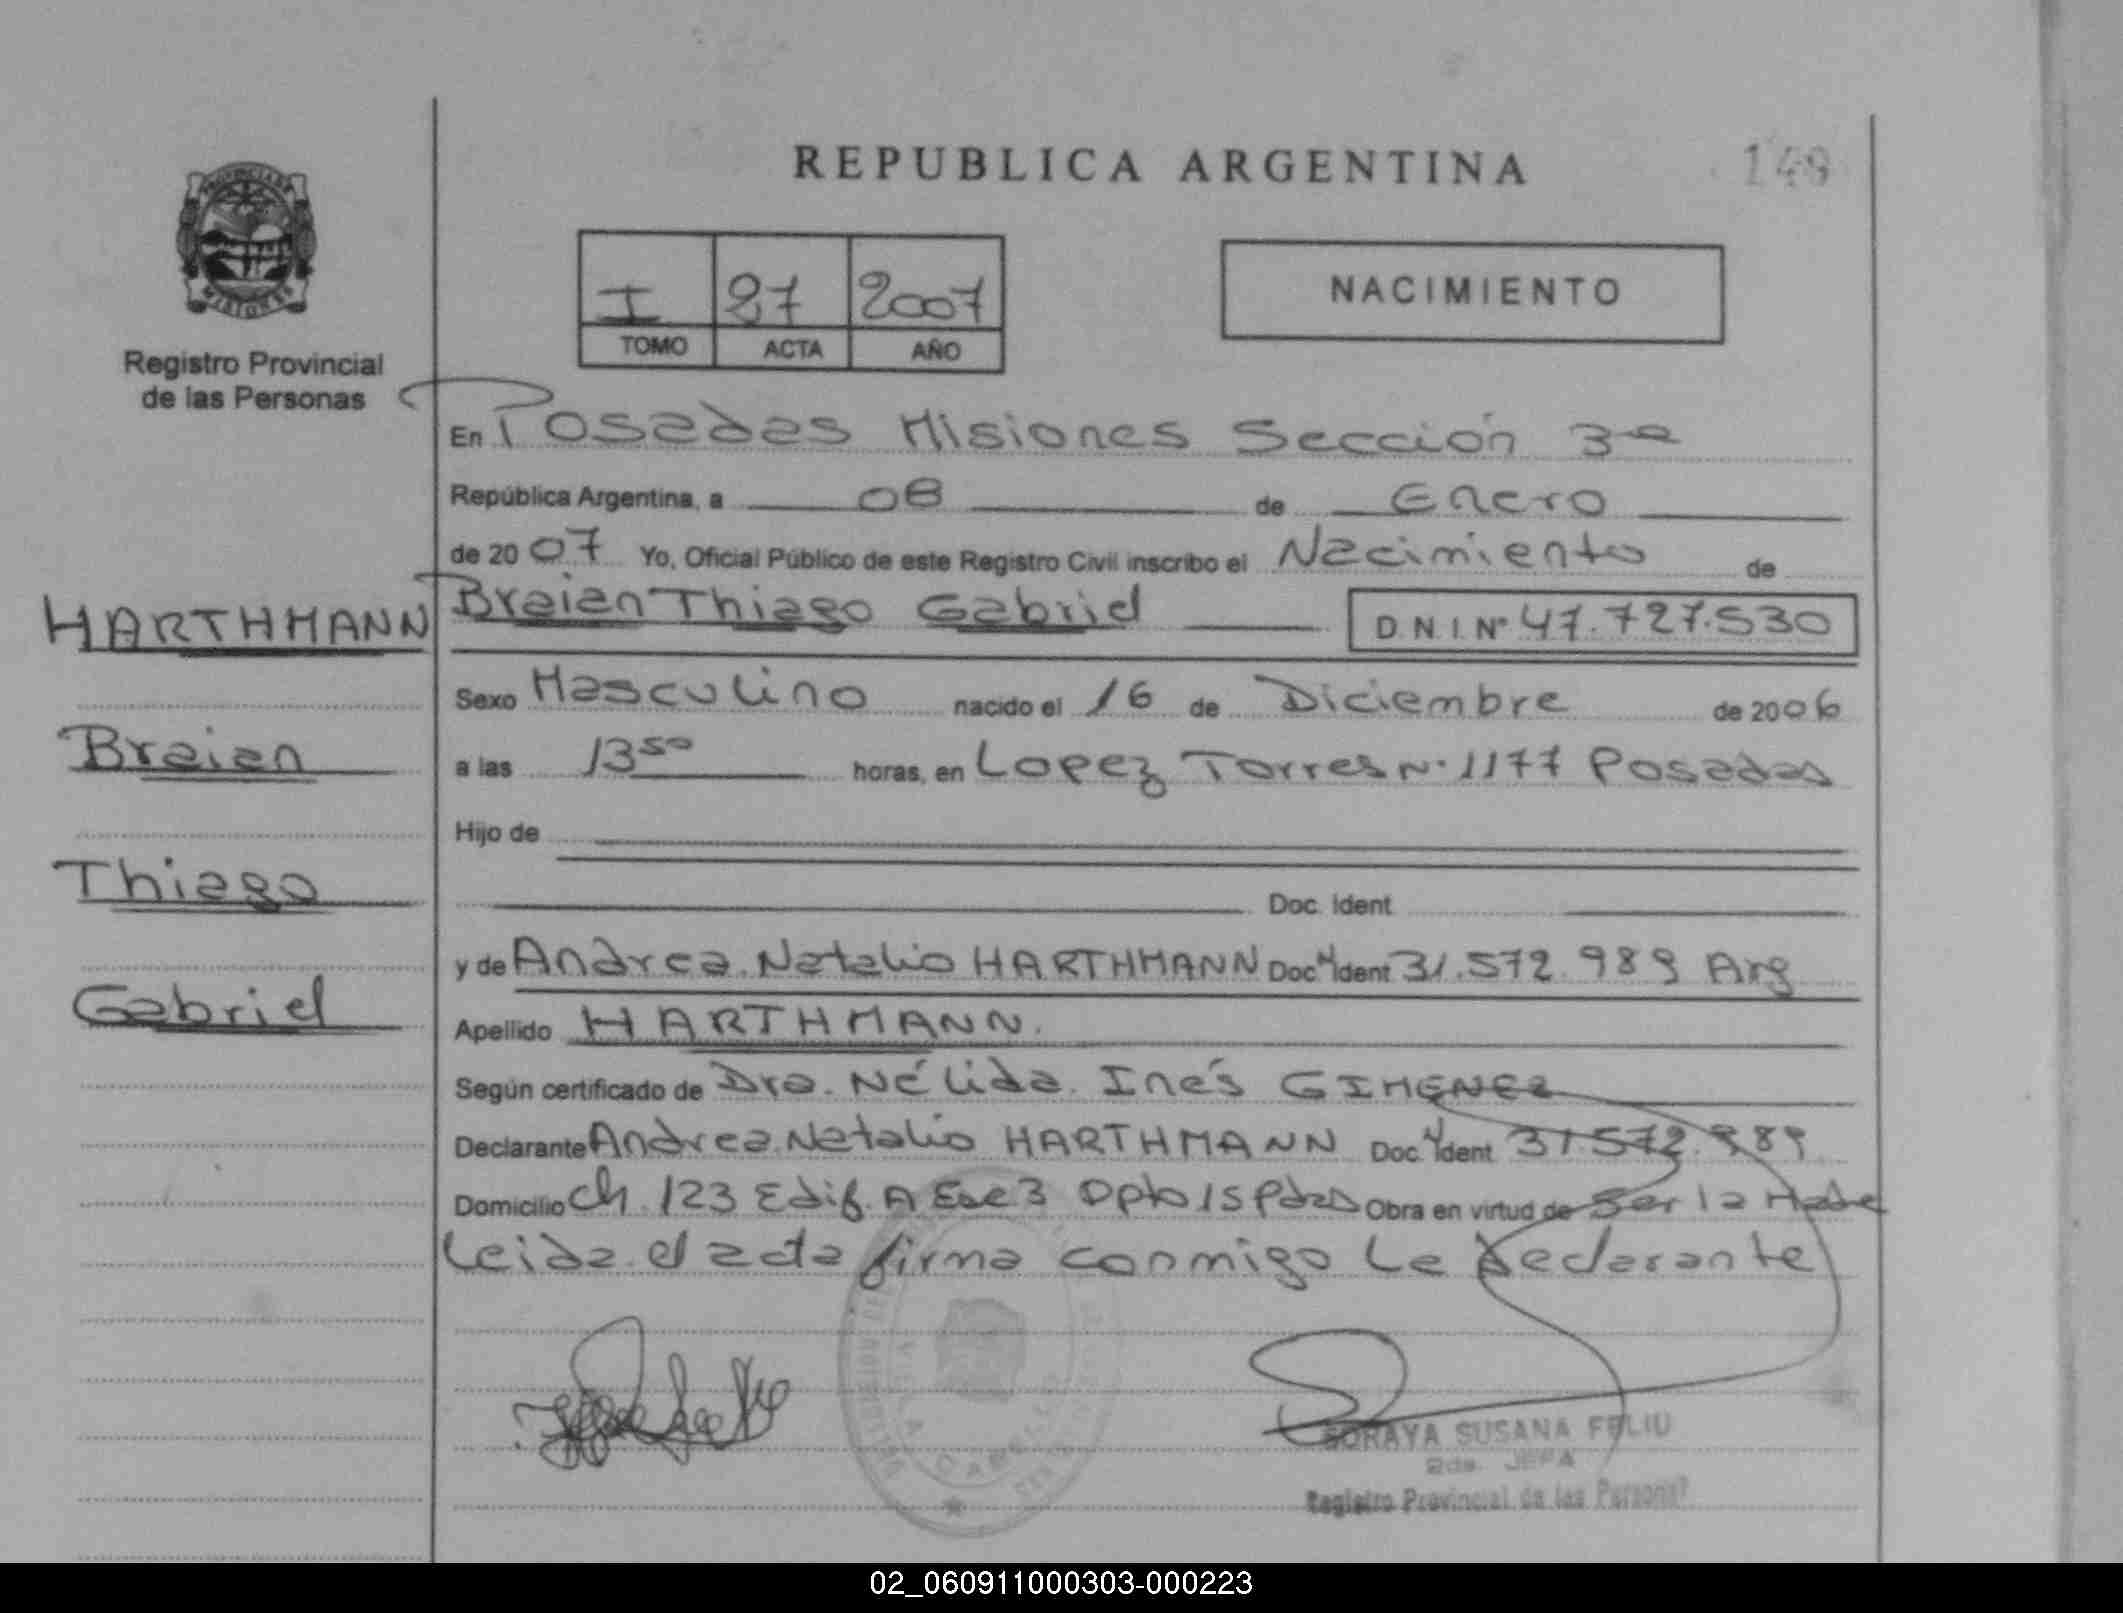 REPUBLICA ARGENTINA
149
PROVINCIA DE
MISIONES
Registro Provincial
de las Personas
I 87 2007
TOMO ACTA AÑO
NACIMIENTO
En Posadas Misiones Sección 3ª
República Argentina, a 08 de Enero
de 2007 Yo, Oficial Público de este Registro Civil inscribo el Nacimiento de
HARTHMANN Braian Thiago Gabriel D.N.I. Nº 47.727.530
Sexo Masculino nacido el 16 de Diciembre de 2006
Braian
a las 13 50 horas, en Lopez Torres N. 1177 Posadas
Hijo de
Thiago
Doc. Ident
y de Andrea Natalia HARTHMANN Doc. Ident 31.572.989 Arg
Gabriel
Apellido HARTHMANN.
Según certificado de Dra. Nélida Inés GIMENEZ
Declarante Andrea Natalia HARTHMANN Doc. Ident 31.572.989
Domicilio Ch. 123 Edif. A Esc 3 Dpto 15 Pdas Obra en virtud de Ser la Madre
Leida el acta firma conmigo la declarante
SORAYA SUSANA FELIU
2da. JEFA
Registro Provincial de las Personas
02_060911000303-000223